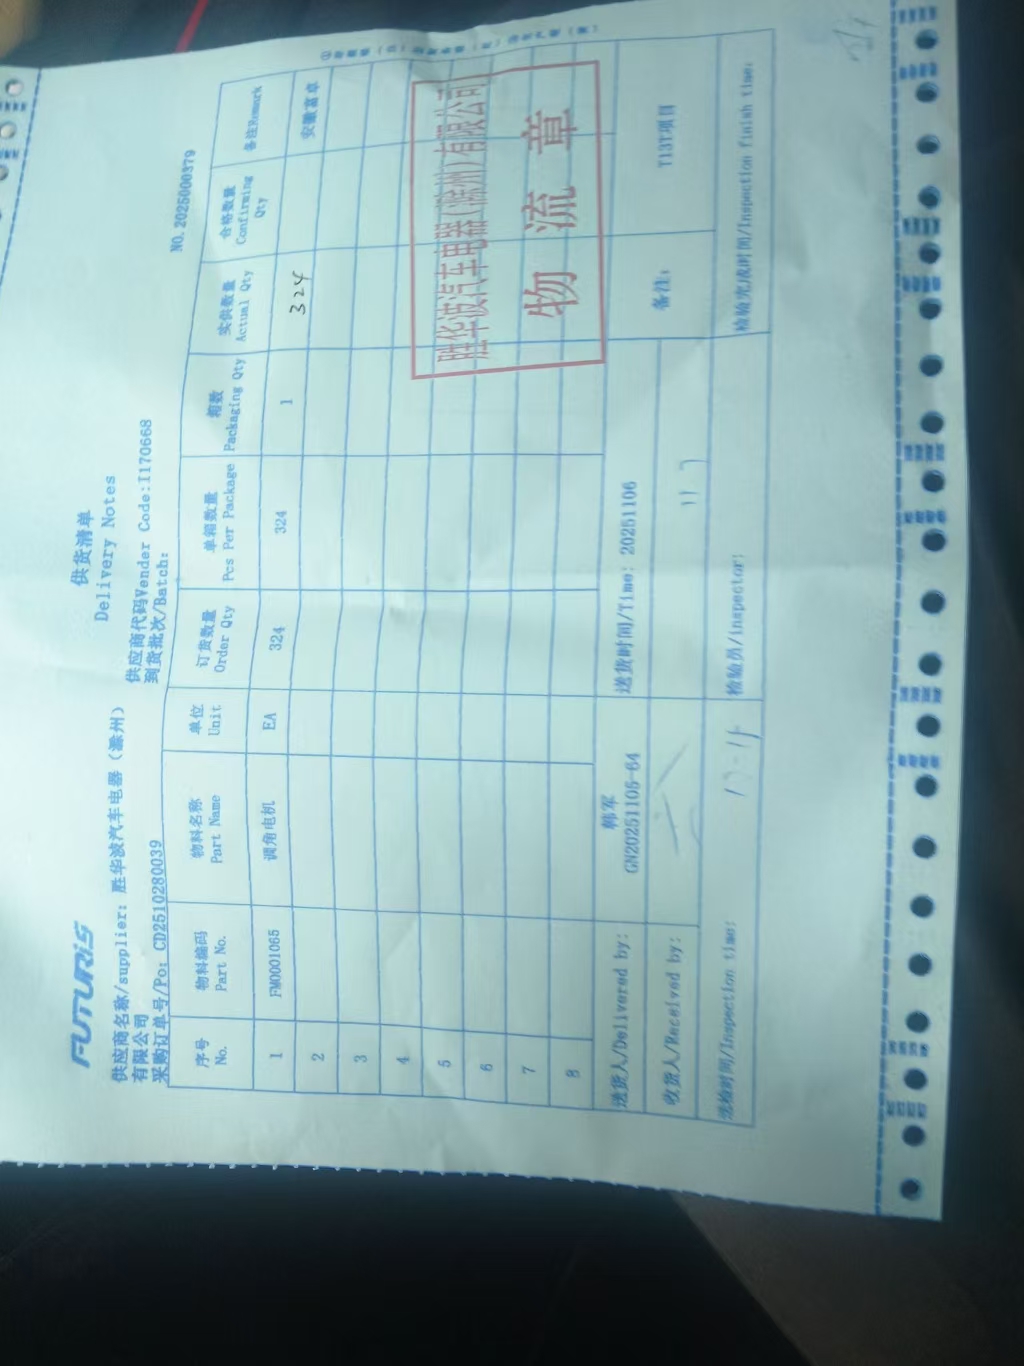 FUTURIS
供货清单
Delivery Notes
NO.2025000379
供应商名称/supplier: 胜华波汽车电器（滁州）
有限公司
供应商代码Vender Code:I170668
采购订单号/Po: CD2510280039
到货批次/Batch:
序号 物料编码 物料名称 单位 订货数量 单箱数量 箱数 实供数量 合格数量 备注Remork
No. Part No. Part Name Unit Order Qty Pcs Per Package Packaging Qty Actual Qty Confirming Qty
1 FM0001065 调角电机 EA 324 324 1 324 安徽富卓
2
3
4
5
6
7
8
胜华波汽车电器(滁州)有限公司
物流章
送货人/Delivered by: 韩军
GN20251105-64
送货时间/Time: 20251106
备注: T13T项目
收货人/Received by:
11 7
送检时间/Inspection time:
检验员/inspector:
检验完成时间/Inspection finish time: